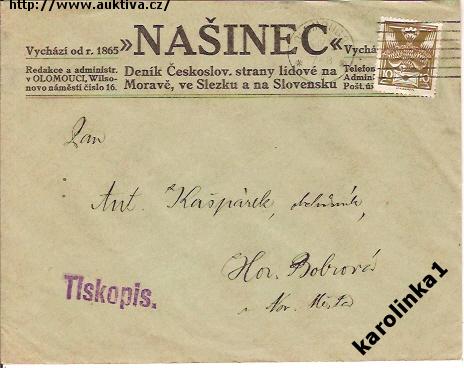 http://www.auktiva.cz/
Vychází od r. 1865 »NAŠINEC« Vychá
Redakce a administr. v OLOMOUCI, Wilsonovo náměstí číslo 16.
Deník Českoslov. strany lidové na Moravě, ve Slezku a na Slovensku
Telefon
Admin
Pošt. ú
15
Pan
Ant. Kašpárek,
Hor. Bobrová
u Nov. Města
Tiskopis.
karolinka1